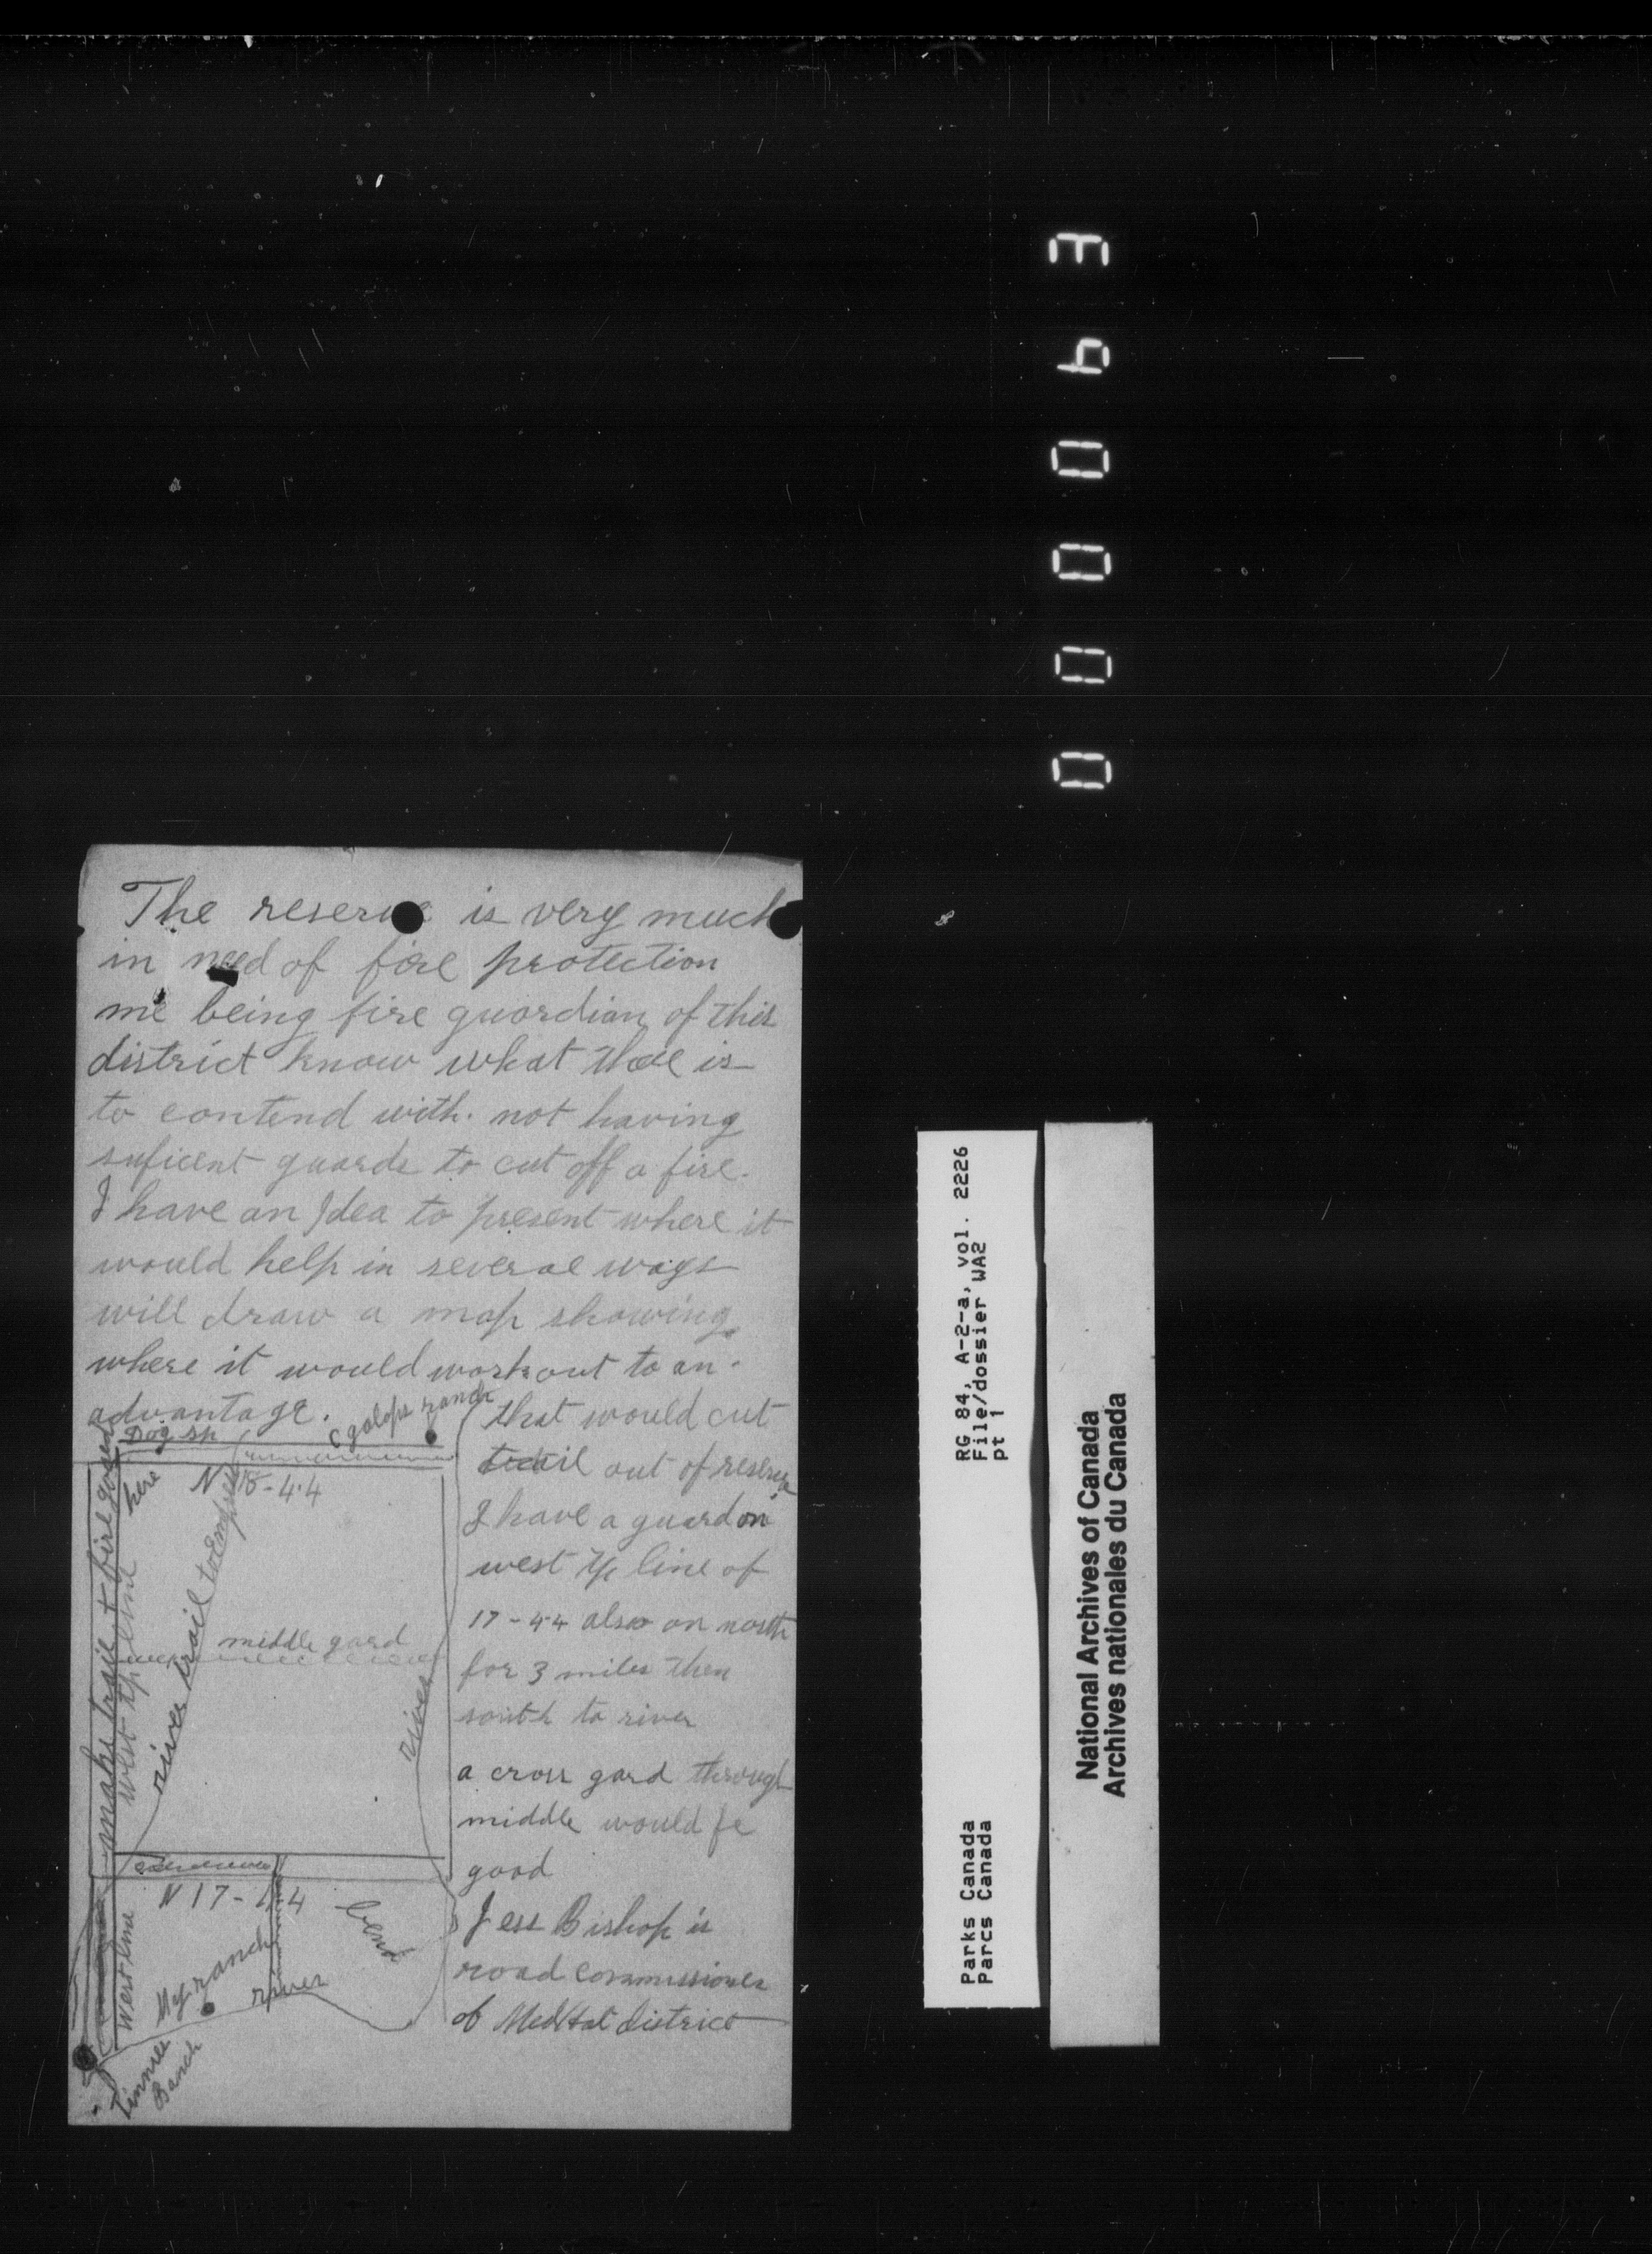 The reserve is very much
in need of fire protection
me being fire guardian of this
district know what there is
to contend with. not having
suficent guards to cut off a fire.
I have an Idea to present where it
would help in several ways
will draw a map showing
where it would work out to an
advantage.
that would cut
trail out of reserve
I have a guard on
west tp line of
17-4-4 also on north
for 3 miles then
south to river
a cross gard through
middle would be
good
Jess Bishop is
road commissioner
of Med Hat district
Dog sp
C golops ranch
N 18-4-4
here
make trail + fire gard
west tp line
river trail to empress
middle gard
river
N 17-4-4
west line
My ranch
river
bend
Ranch
000063
RG 84, A-2-a, vol. 2226
File/dossier WA2
pt 1
Parks Canada
Parcs Canada
National Archives of Canada
Archives nationales du Canada